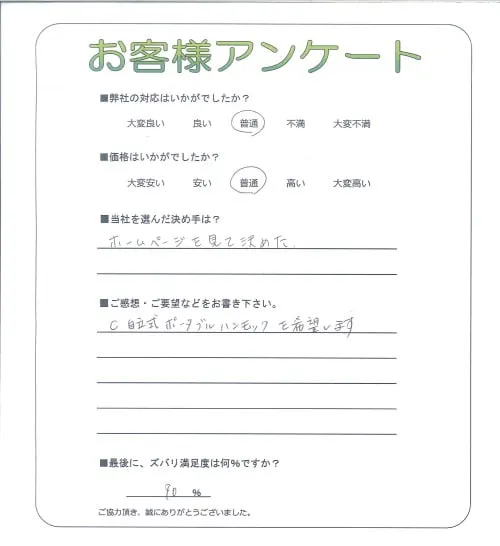 お客様アンケート
■弊社の対応はいかがでしたか？
大変良い 良い 普通 不満 大変不満
■価格はいかがでしたか？
大変安い 安い 普通 高い 大変高い
■当社を選んだ決め手は？
ホームページを見て決めた.
■ご感想・ご要望などをお書き下さい。
C 自立式ポータブルハンモックを希望します
■最後に、ズバリ満足度は何%ですか？
90 %
ご協力頂き、誠にありがとうございました。